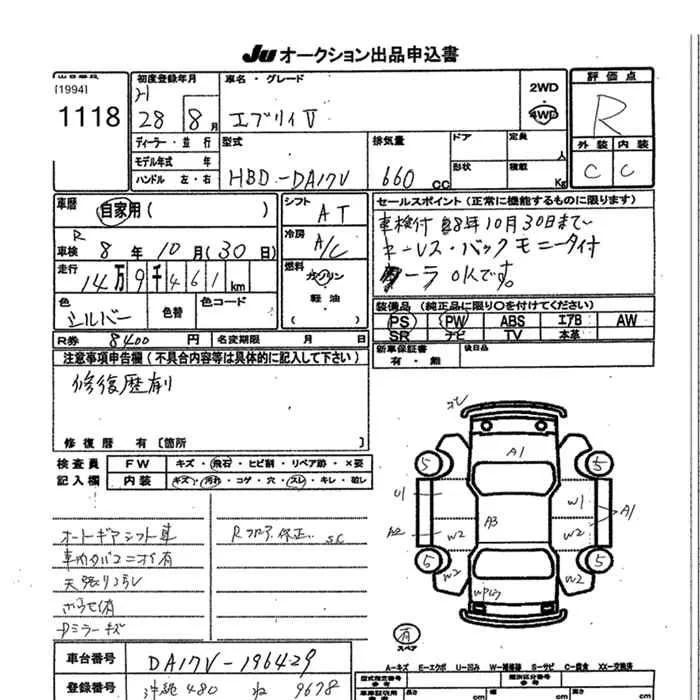 Ju オークション出品申込書
[1994]
1118
初度登録年月
28 8月
車名・グレード
エブリィV
2WD
4WD
評価点
R
外装 内装
C C
ディーラー・並行
モデル年式 年
ハンドル 左・右
型式
HBD-DA17V
排気量
660 cc
ドア
形状
定員
人
積載
Kg
車歴
自家用( )
R
車検 8年10月(30日)
走行
14万9千461km
色
シルバー
色替
色コード
シフト
AT
冷房
A/C
燃料
ガソリン
・
軽油
( )
セールスポイント(正常に機能するものに限ります)
車検付 R8年10月30日まで
キーレス・バックモニター付
クーラーOKです。
装備品(純正品に限り○を付けてください)
PS PW ABS エアB AW
SR ナビ TV 本革
R券 8400円
名変期限 月 日
新車保証書
有・無
後日品
注意事項申告欄(不具合内容等は具体的に記入して下さい)
修復歴有
修復暦 有〔箇所 〕
検査員
記入欄
FW キズ・飛石・ヒビ割・リペア跡・×要
内装 キズ・汚れ・コゲ・穴・スレ・キレ・破レ
オートギアシフト車
車内タバコニオイ有
天張り汚レ
Dミラーキズ
Rフロア修正 SC
A1
5 5
U1 W1
A1
A2 W2 A3 W2
5 5
W2 W2
有
スペア
車台番号
DA17V-196429
A-キズ E-エクボ U-凹み W-補修跡 S-サビ C-腐食 XX-交換済
登録番号
沖縄 480 ね 9678
型式指定番号
類別区分番号
長さ
cm
高さ